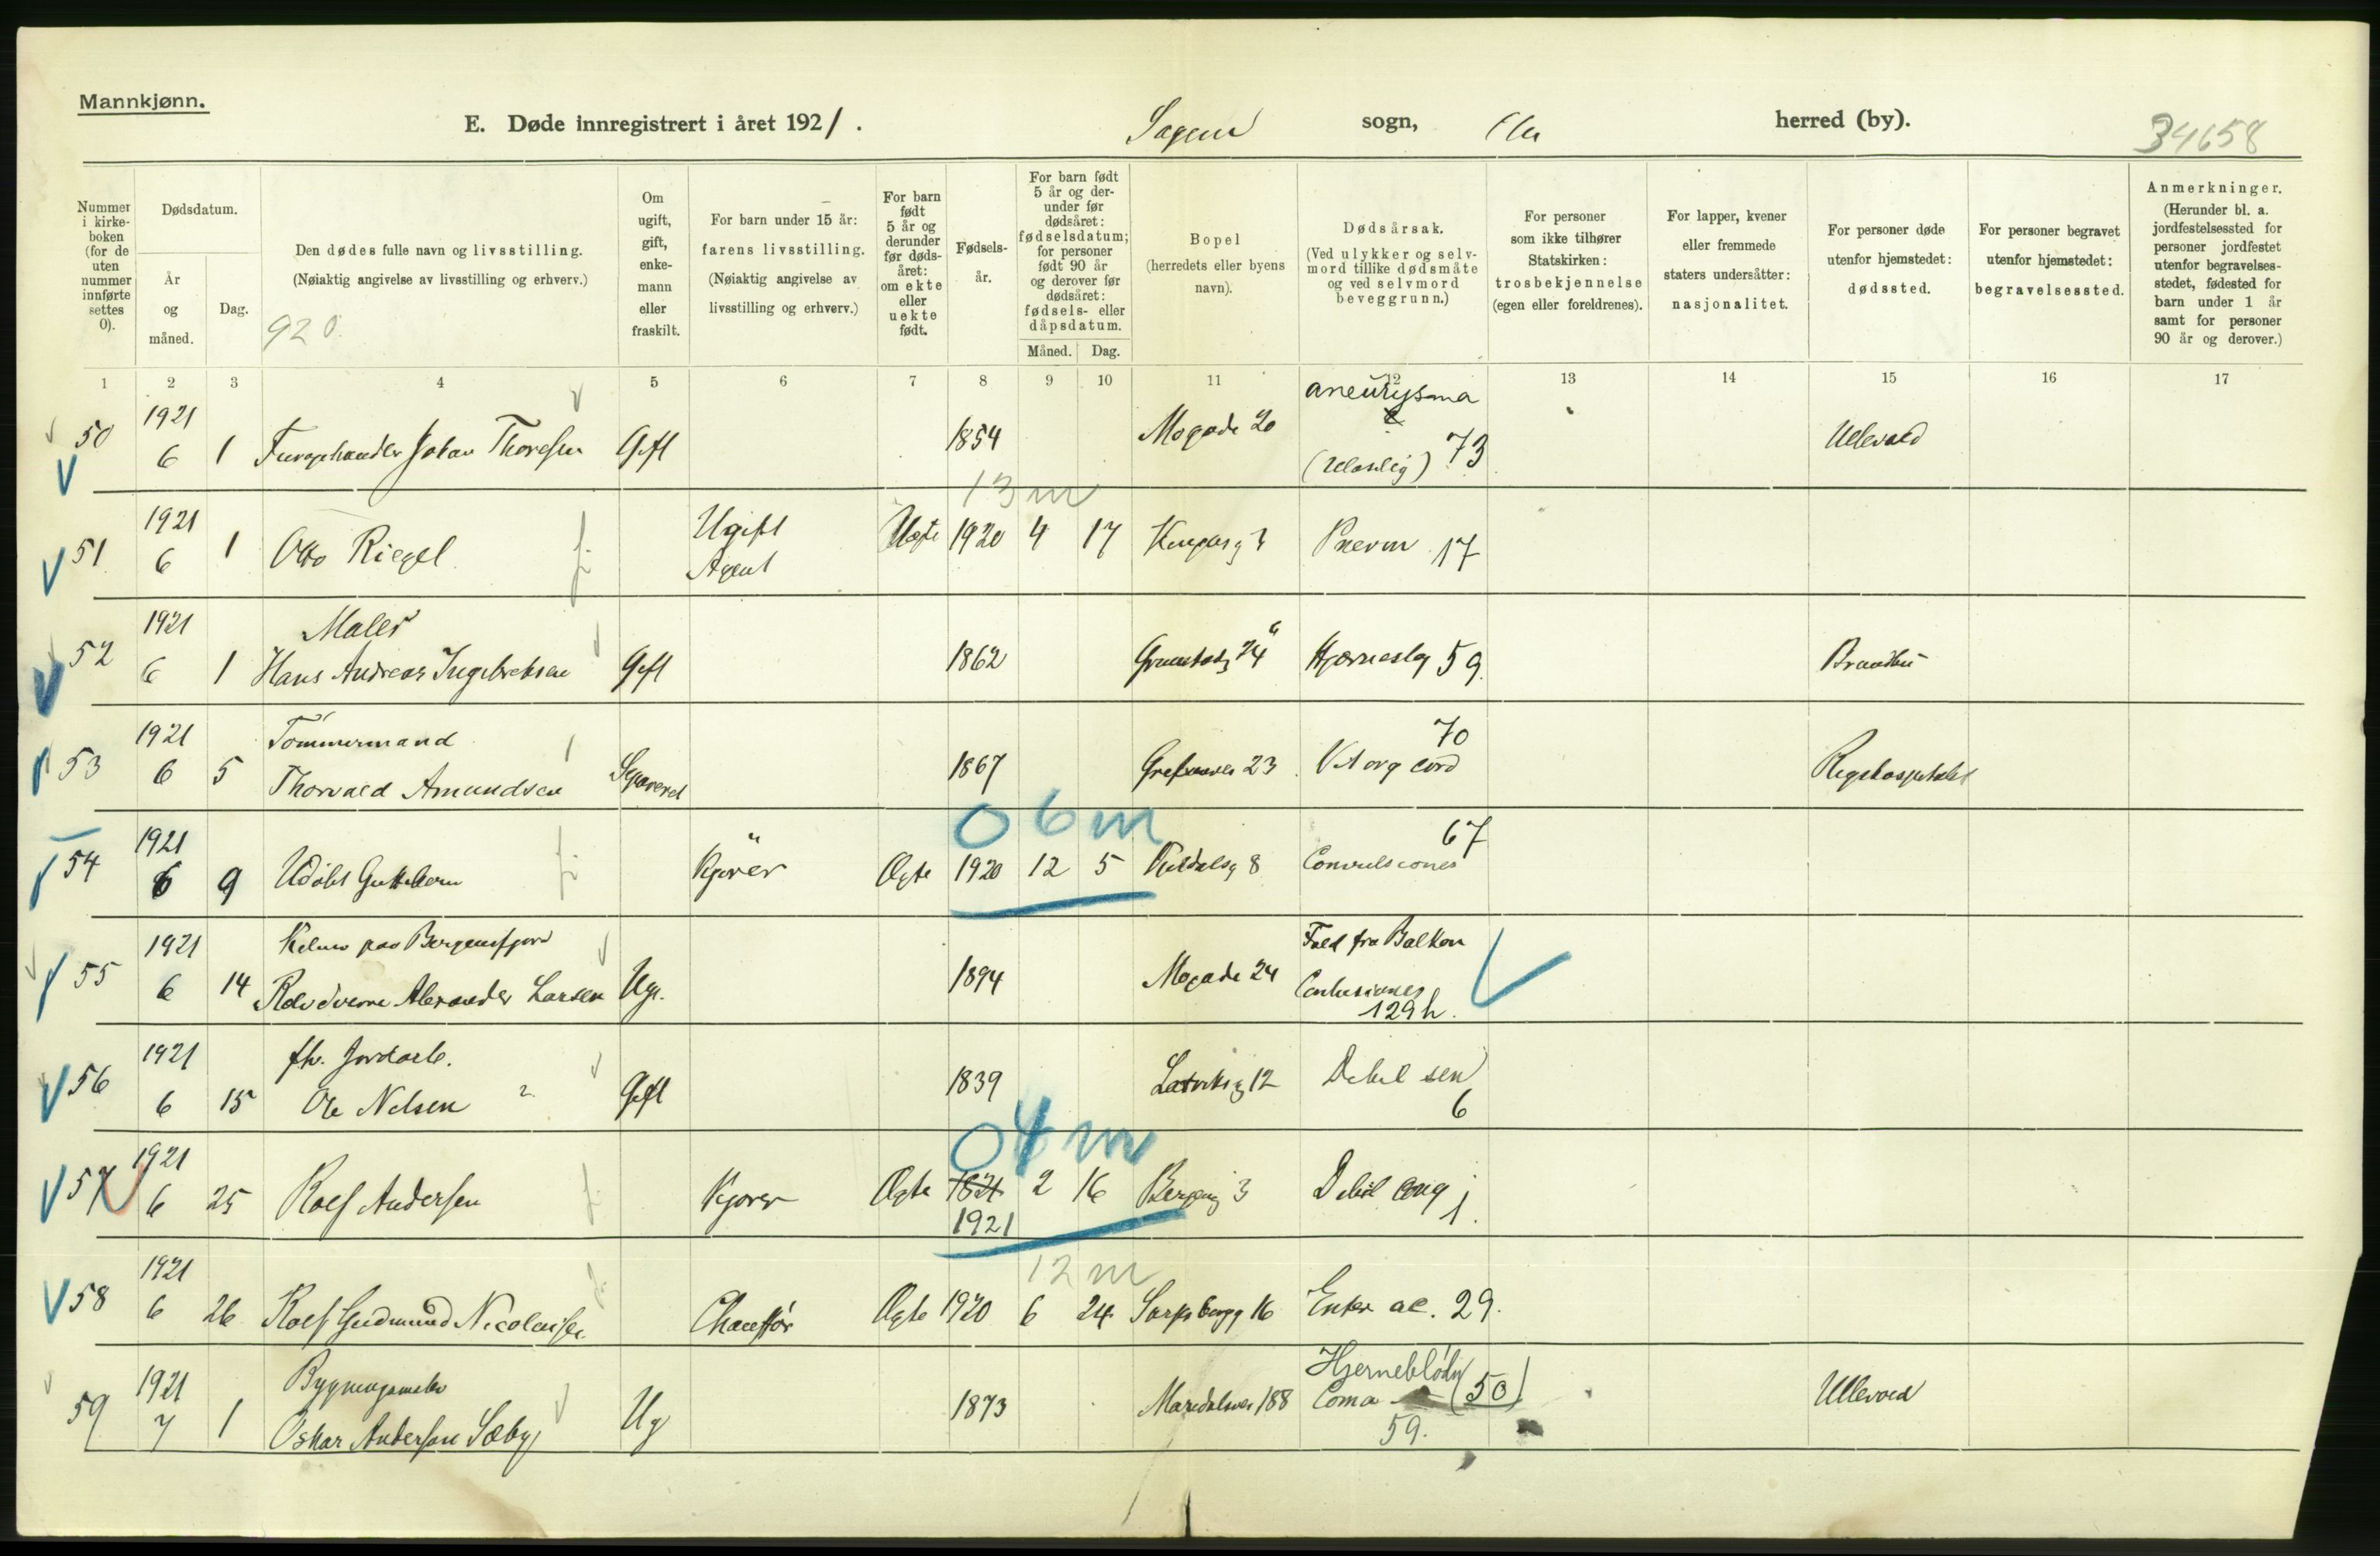 Mannkjønn.
E. Døde innregistrert i året 1921. Sagene sogn, herred (by).
34658
Nummer i kirkeboken (for de uten nummer innførte settes 0).
Dødsdatum.
År og måned.
Dag.
Den dødes fulle navn og livsstilling.
(Nøiaktig angivelse av livsstilling og erhverv.)
920
Om ugift, gift, enkemann eller fraskilt.
For barn under 15 år:
farens livsstilling.
(Nøiaktig angivelse av livsstilling og erhverv.)
For barn født 5 år og derunder før dødsåret: om ekte eller uekte født.
Fødselsår.
For barn født 5 år og derunder før dødsåret: fødselsdatum; for personer født 90 år og derover før dødsåret: fødsels- eller dåpsdatum.
Måned. Dag.
Bopel
(herredets eller byens navn).
Dødsårsak.
(Ved ulykker og selvmord tillike dødsmåte og ved selvmord beveggrunn.)
For personer som ikke tilhører Statskirken:
trosbekjennelse
(egen eller foreldrenes).
For lapper, kvener eller fremmede staters undersåtter:
nasjonalitet.
For personer døde utenfor hjemstedet:
dødssted.
For personer begravet utenfor hjemstedet:
begravelsessted.
Anmerkninger.
(Herunder bl. a. jordfestelsessted for personer jordfestet utenfor begravelsesstedet, fødested for barn under 1 år samt for personer 90 år og derover.)
1 2 3 4 5 6 7 8 9 10 11 12 13 14 15 16 17
50 1921 6 1 Johan Thoresen Gift 1854 Mogade 20 aneurysma 73 Ullevaal
13 m
51 1921 6 1 Otto Riegel Ugift Agent Uegte 1920 4 17 Pneum 17
52 1921 6 1 Maler
Hans Andreas Ingebretsen Gift 1862 Hjerneslag 59.
53 1921 6 5 Tömmermand
Thorvald Amundsen Separeret 1867 Grefsenvei 23 Vit org cord 70 Rigshospitalet
06 m
54 1921 6 9 Udöbt Guttebarn Kjører Ægte 1920 12 5 8 Convulsiones 67
55 1921 6 14 Kelner paa Bergensfjord
Alexander Larsen Ug. 1894 Mogade 24 Fald fra Balkon
Contusiones
129h.
56 1921 6 15 fhv. Jordarb.
Ole Nelsen Gift 1839 Larviksg 12 Debil sen
6
04 m
57 1921 6 25 Rolf Andersen Kjører Ægte 1821 2 16 Bergensg 3 Debil cong 1.
1921
12 m
58 1921 6 26 Rolf Gudmund Nicolaisen Chauffør Ægte 1920 6 24 Sarpsborgg 16 Enter ac. 29.
59 1921 7 1 Bygningsmester
Oskar Andersen Sæby Ug 1873 Maridalsvei 188 Hjerneblødn
Coma (50)
59. Ullevaal